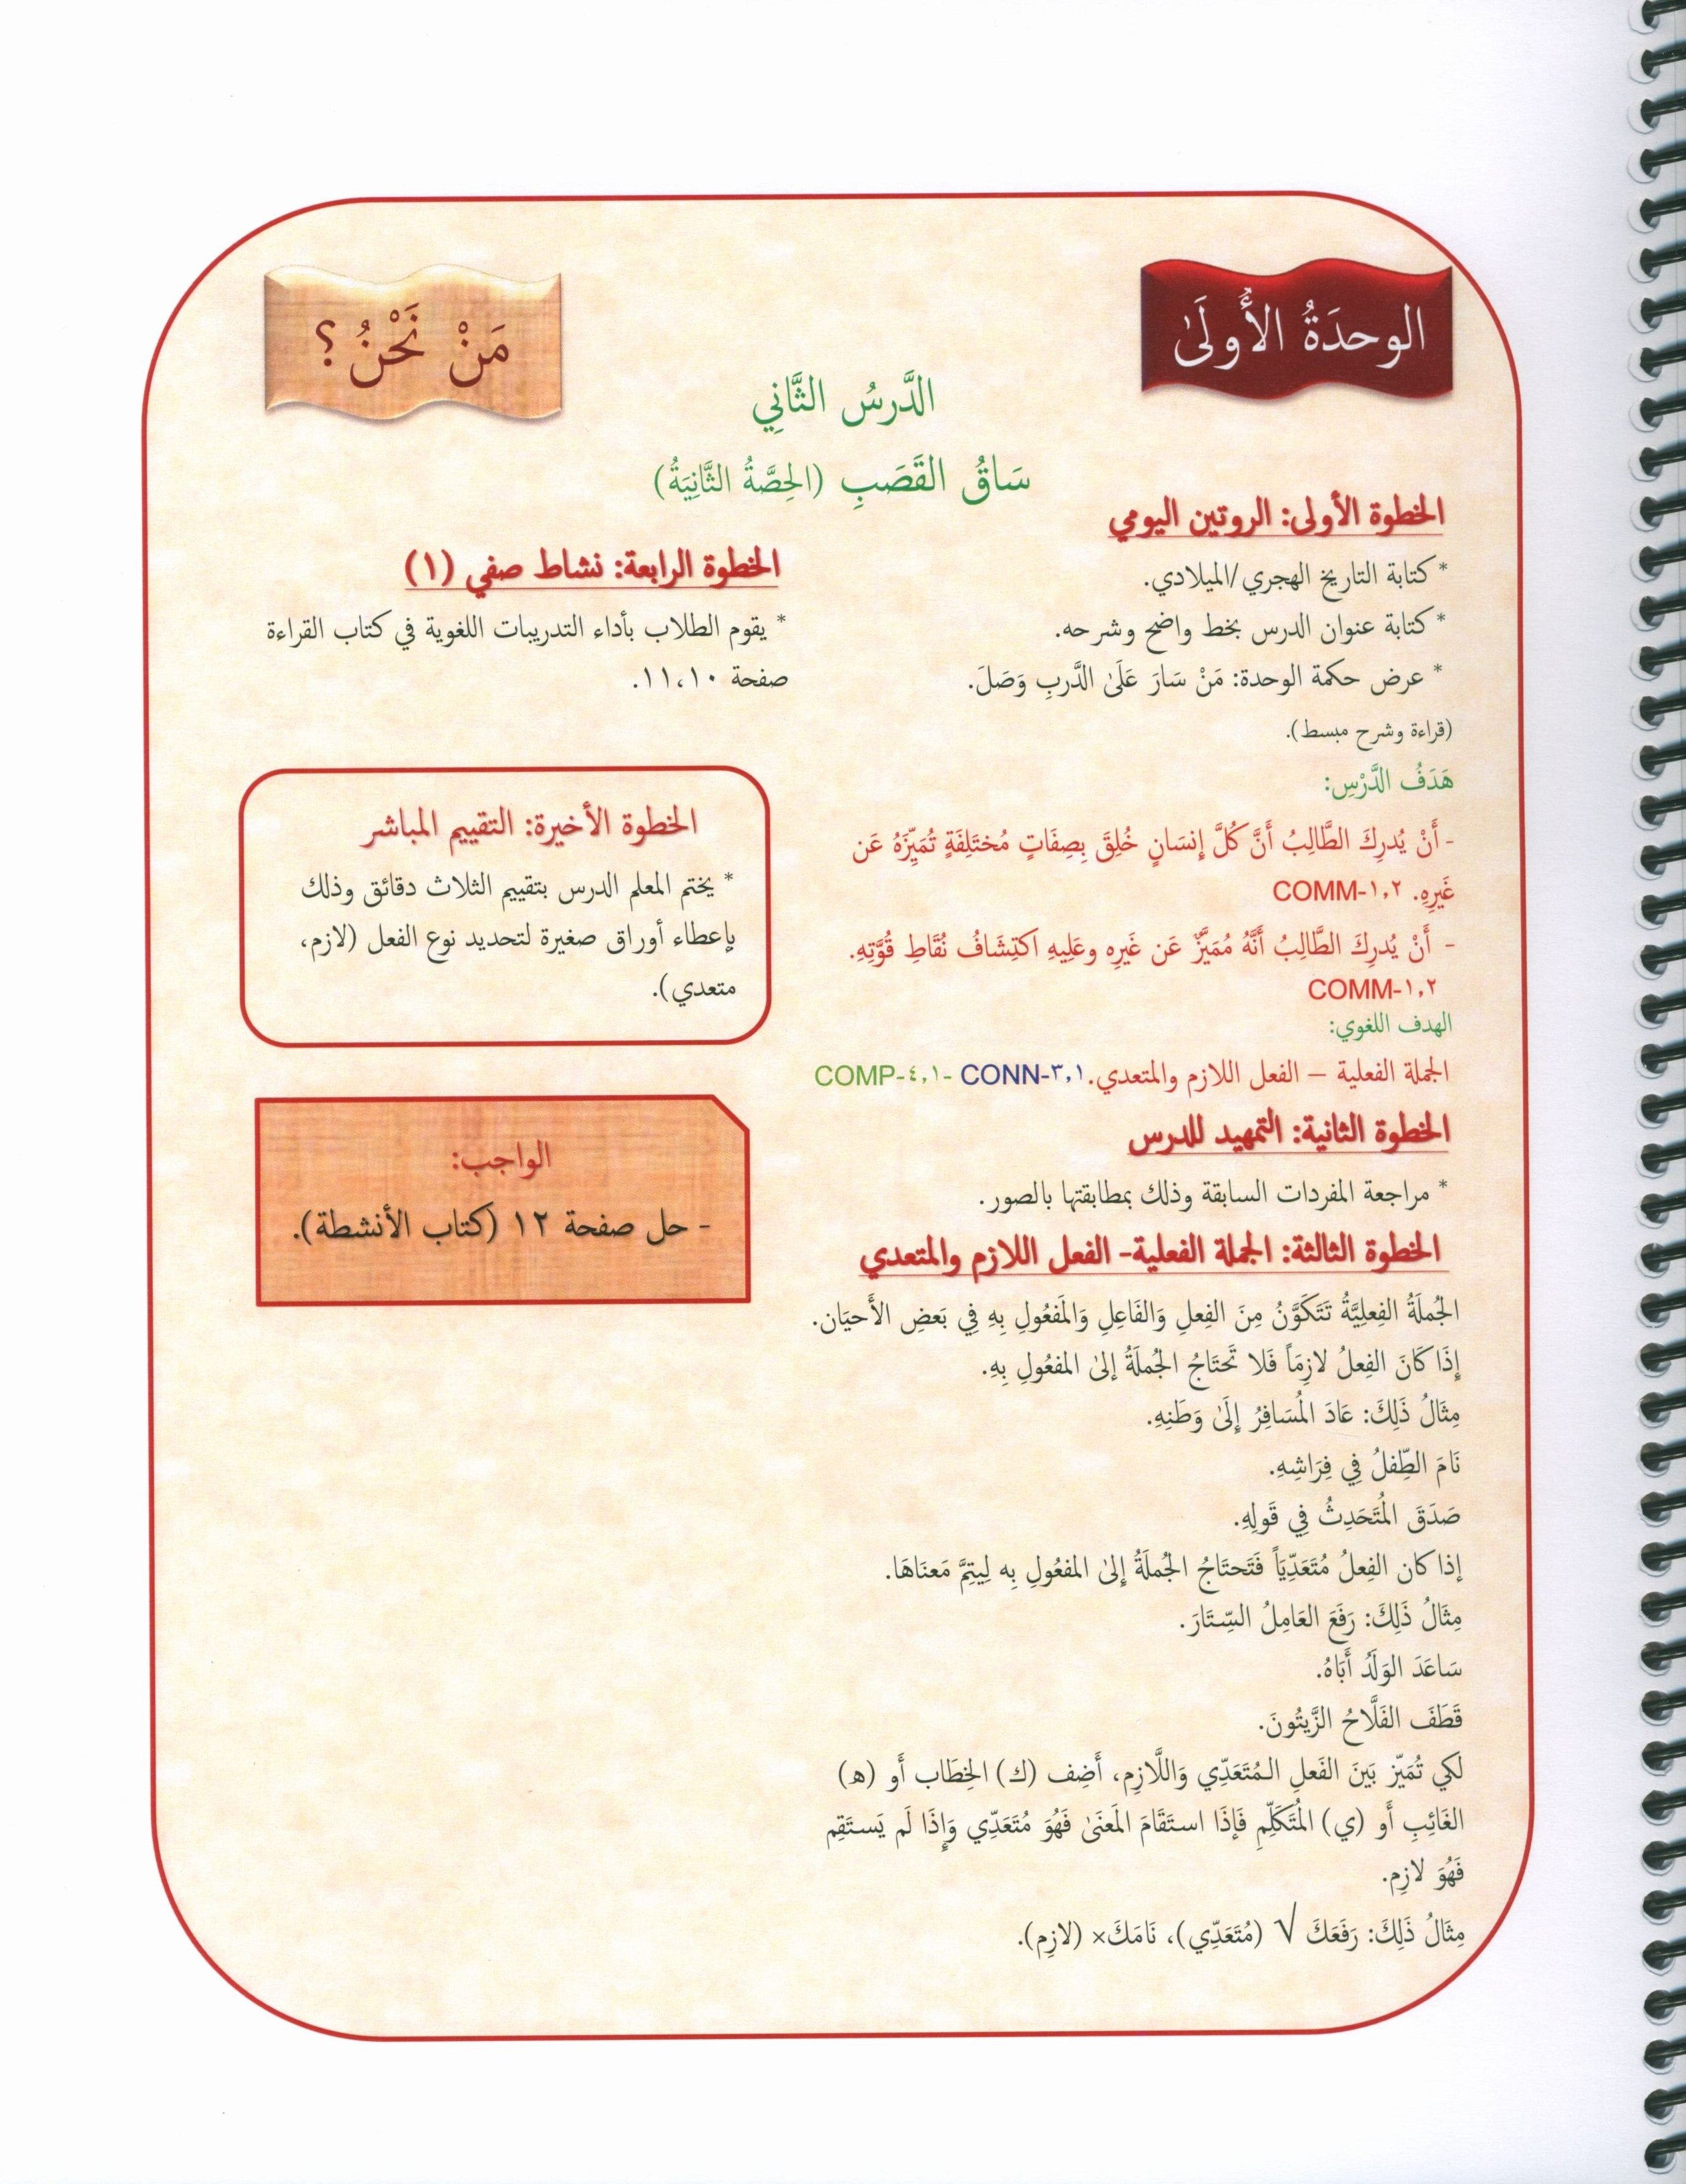 الوحدَةُ الأُولَىٰ
مَنْ نَحْنُ؟
الدَّرسُ الثَّانِي
سَاقُ القَصَبِ (الحِصَّةُ الثَّانِيَةُ)
الخطوة الأولى: الروتين اليومي
* كتابة التاريخ الهجري/الميلادي.
* كتابة عنوان الدرس بخط واضح وشرحه.
* عرض حكمة الوحدة: مَنْ سَارَ عَلَىٰ الدَّربِ وَصَلَ.
(قراءة وشرح مبسط).
هَدَفُ الدَّرْسِ:
- أَنْ يُدرِكَ الطَّالِبُ أَنَّ كُلَّ إِنسَانٍ خُلِقَ بِصِفَاتٍ مُختَلِفَةٍ تُمَيِّزَهُ عَن
غَيرِهِ. COMM-١,٢
- أَنْ يُدرِكَ الطَّالِبُ أَنَّهُ مُمَيَّزٌ عَن غَيرِه وعَلِيهِ اكتِشَافُ نُقَاطِ قُوَّتِهِ.
COMM-١,٢
الهدف اللغوي:
الجملة الفعلية – الفعل اللازم والمتعدي. COMP-٤,١- CONN-٣,١
الخطوة الثانية: التمهيد للدرس
* مراجعة المفردات السابقة وذلك بمطابقتها بالصور.
الخطوة الثالثة: الجملة الفعلية- الفعل اللازم والمتعدي
الجُملَةُ الفِعلِيَّةُ تَتَكَوَّنُ مِنَ الفِعلِ وَالفَاعِلِ وَالمَفعُولِ بِهِ فِي بَعضِ الأَحيَان.
إِذَا كَانَ الفِعلُ لازِمَاً فَلا تَحتَاجُ الجُملَةُ إِلىٰ المفعُولِ بِهِ.
مِثَالُ ذَلِكَ: عَادَ المُسَافِرُ إِلَىٰ وَطَنِهِ.
نَامَ الطِّفلُ فِي فِرَاشِهِ.
صَدَقَ المُتَحَدِثُ فِي قَولِهِ.
إذا كان الفِعلُ مُتَعَدِّيَاً فَتَحتَاجُ الجُملَةُ إِلىٰ المفعُولِ بِه لِيتِمَّ مَعنَاهَا.
مِثَالُ ذَلِكَ: رَفَعَ العَامِلُ السِّتَارَ.
سَاعَدَ الوَلَدُ أَبَاهُ.
قَطَفَ الفَلَّاحُ الزَّيتُونَ.
لكي تُمَيّزَ بَينَ الفَعلِ المُتَعَدِّي وَاللَّازِم، أَضِف (ك) الخِطَاب أَو (ه)
الغَائِبِ أَو (ي) المُتَكَلِّمِ فَإِذَا استَقَامَ المَعنَىٰ فَهُوَ مُتَعَدِّي وَإِذَا لَم يَستَقِم
فَهُوَ لازِم.
مِثَالُ ذَلِكَ: رَفَعَكَ √ (مُتَعَدِّي)، نَامَكَ× (لازِم).
الخطوة الرابعة: نشاط صفي (١)
* يقوم الطلاب بأداء التدريبات اللغوية في كتاب القراءة
صفحة ١١،١٠.
الخطوة الأخيرة: التقييم المباشر
* يختم المعلم الدرس بتقييم الثلاث دقائق وذلك
بإعطاء أوراق صغيرة لتحديد نوع الفعل (لازم،
متعدي).
الواجب:
- حل صفحة ١٢ (كتاب الأنشطة).